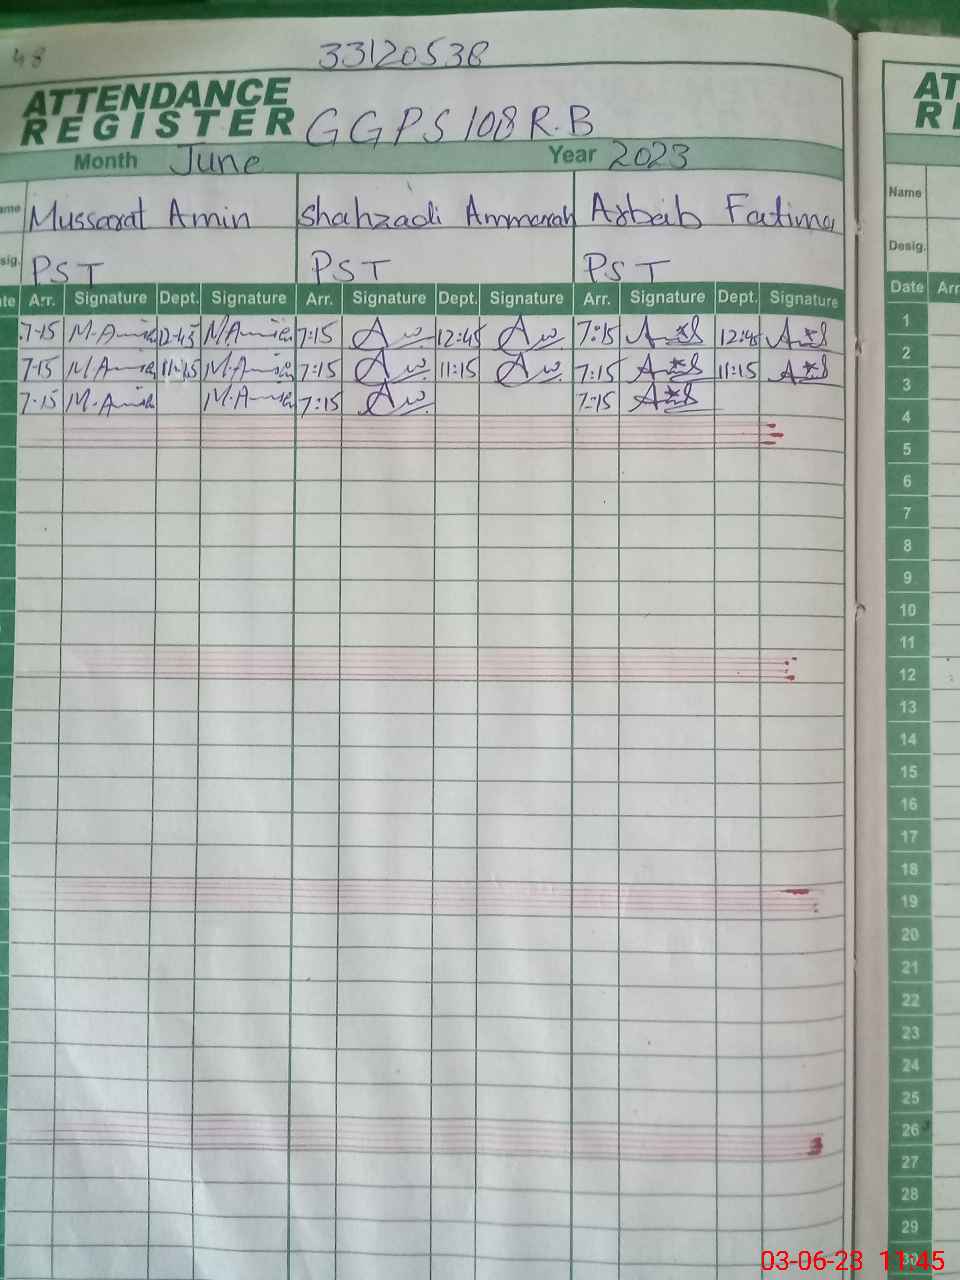 48
33120538
ATTENDANCE
REGISTER GGPS 108 R.B
Month June Year 2023
ame Mussarat Amin Shahzadi Ammarah Arbab Fatima
sig. PST PST PST
te Arr. Signature Dept. Signature Arr. Signature Dept. Signature Arr. Signature Dept. Signature
7-15 M.Amin 12-45 M.Amin 7:15 12:45 7:15 12:45
7-15 M.Amin 11:15 M.Amin 7:15 11:15 7:15 11:15
7-15 M.Amin M.Amin 7:15 7:15
AT
RE
Name
Desig.
Date Arr
1
2
3
4
5
6
7
8
9
10
11
12
13
14
15
16
17
18
19
20
21
22
23
24
25
26
27
28
29
30
03-06-23 11:45